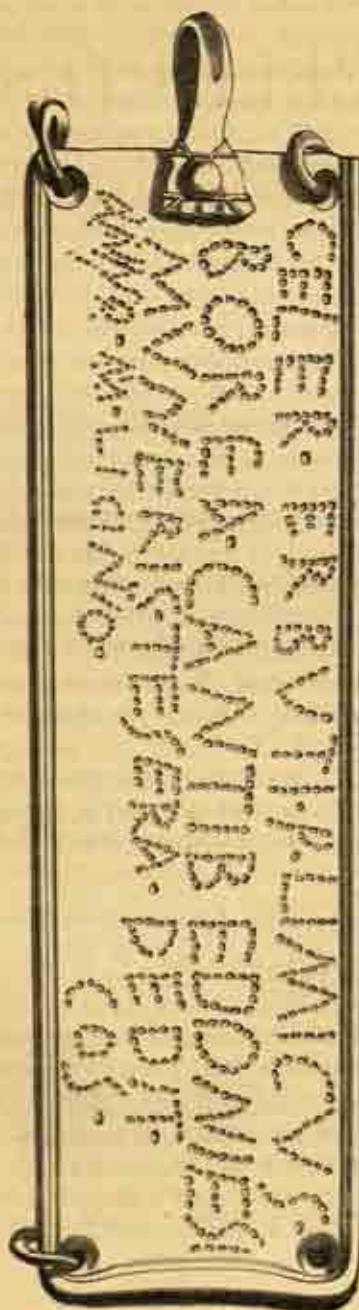 CELER · ERBVTI · F · LIMICVS
BOREA · CANTIBEDONIESI
MVNERIS · TESERA · DEDIT ·
ANNO · M · LICINIO · COS ·